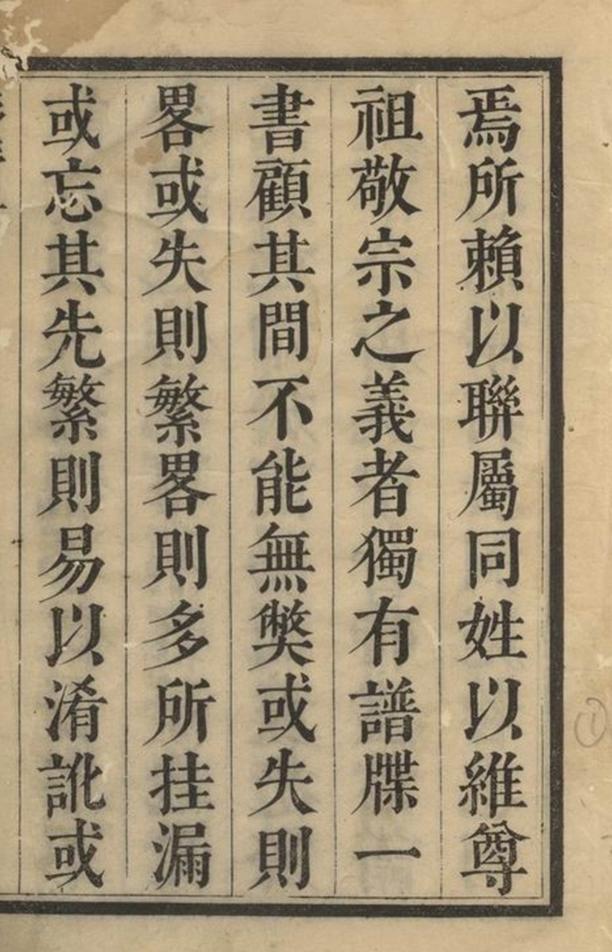 焉所賴以聯屬同姓以維尊
祖敬宗之義者獨有譜牒一
書顧其間不能無獘或失則
畧或失則繁畧則多所挂漏
或忘其先繁則易以淆訛或